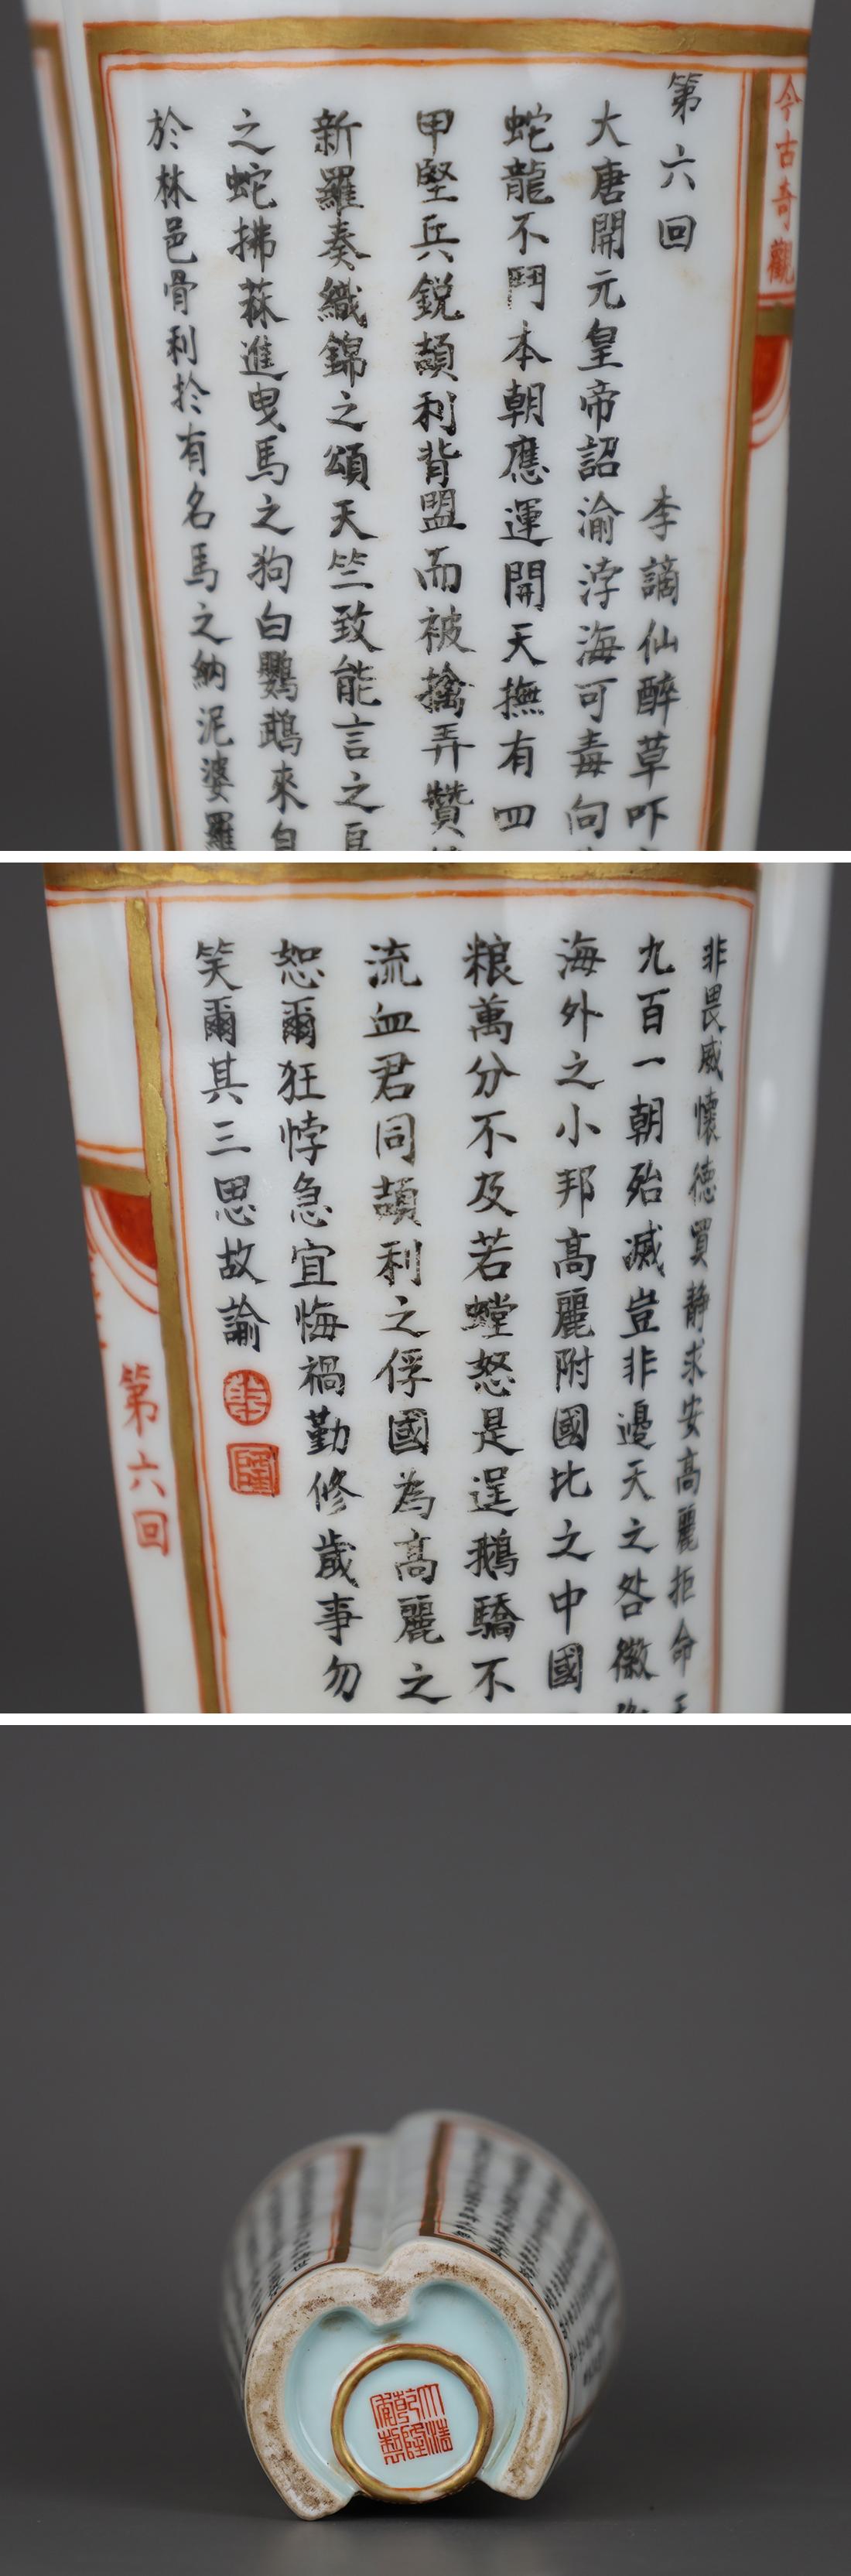 今古奇觀
第六回
李謫仙醉草吓
大唐開元皇帝詔渝渤海可毒向
蛇龍不鬥本朝應運開天撫有四
甲堅兵鋭頡利背盟而被擒弄贊
新羅奏織錦之頌天竺致能言之
之蛇拂菻進曳馬之狗白鸚鵡來自
於林邑骨利於有名馬之納泥婆羅
非畏威懷德買静求安高麗拒命天
九百一朝殆滅豈非邊天之咎徵
海外之小邦高麗附國比之中國
粮萬分不及若螳怒是逞鵝驕不
流血君同頡利之俘國為高麗之
恕爾狂悖急宜悔禍勤修歲事勿
笑爾其三思故諭
乾
隆
第六回
大清
乾隆
年製